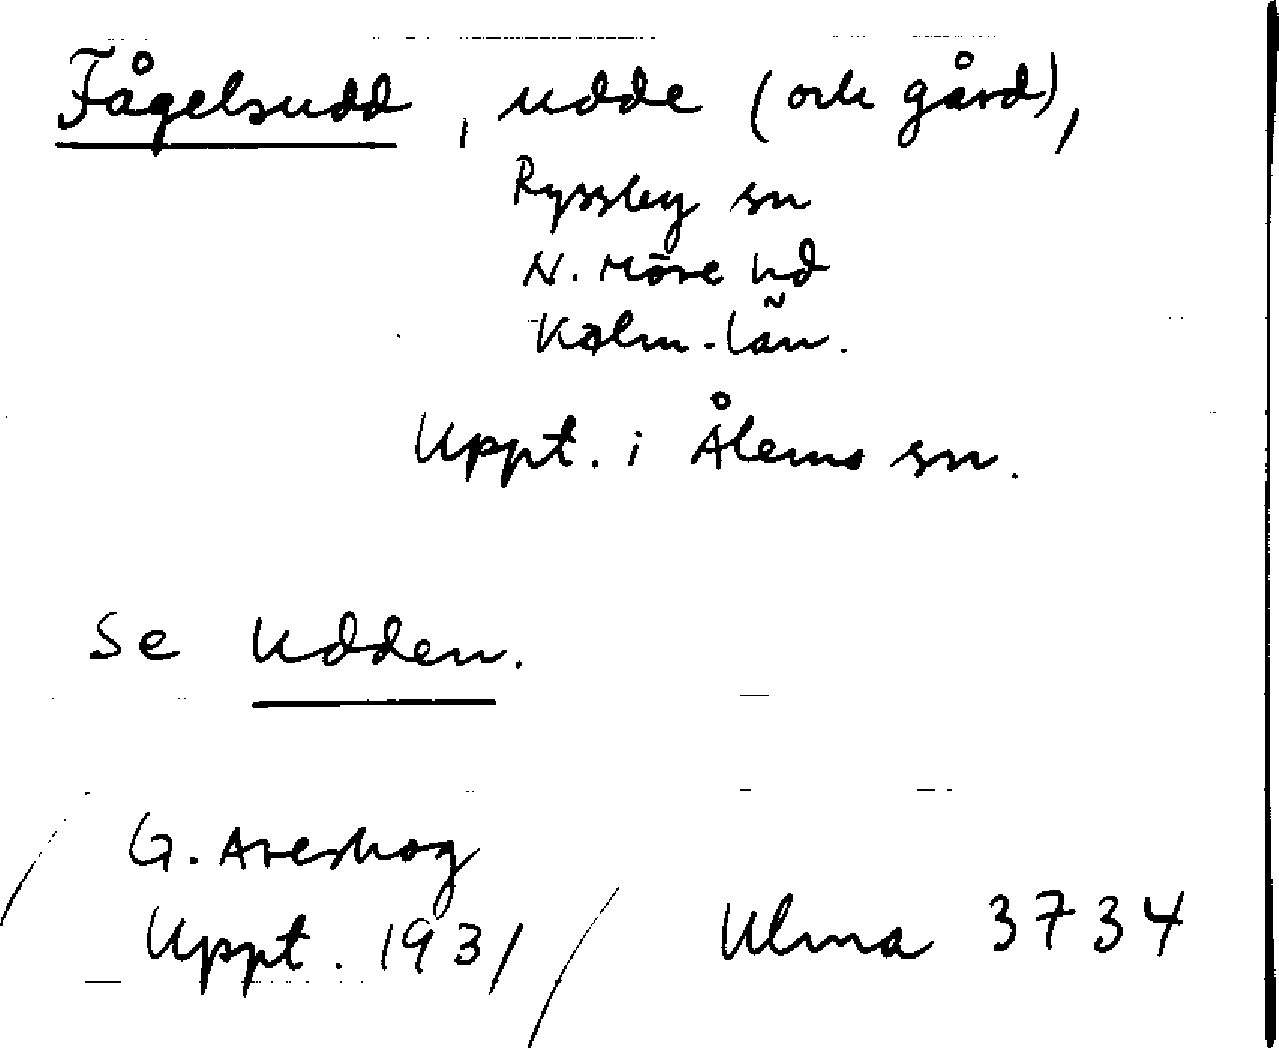 Fågelsudd, udde (och gård),
Ryssby sn
N. Möre hd
Kalm. län.
Uppt. i Ålems sn.
Se Udden.
G. Areskog
Uppt. 1931
Ulma 3734